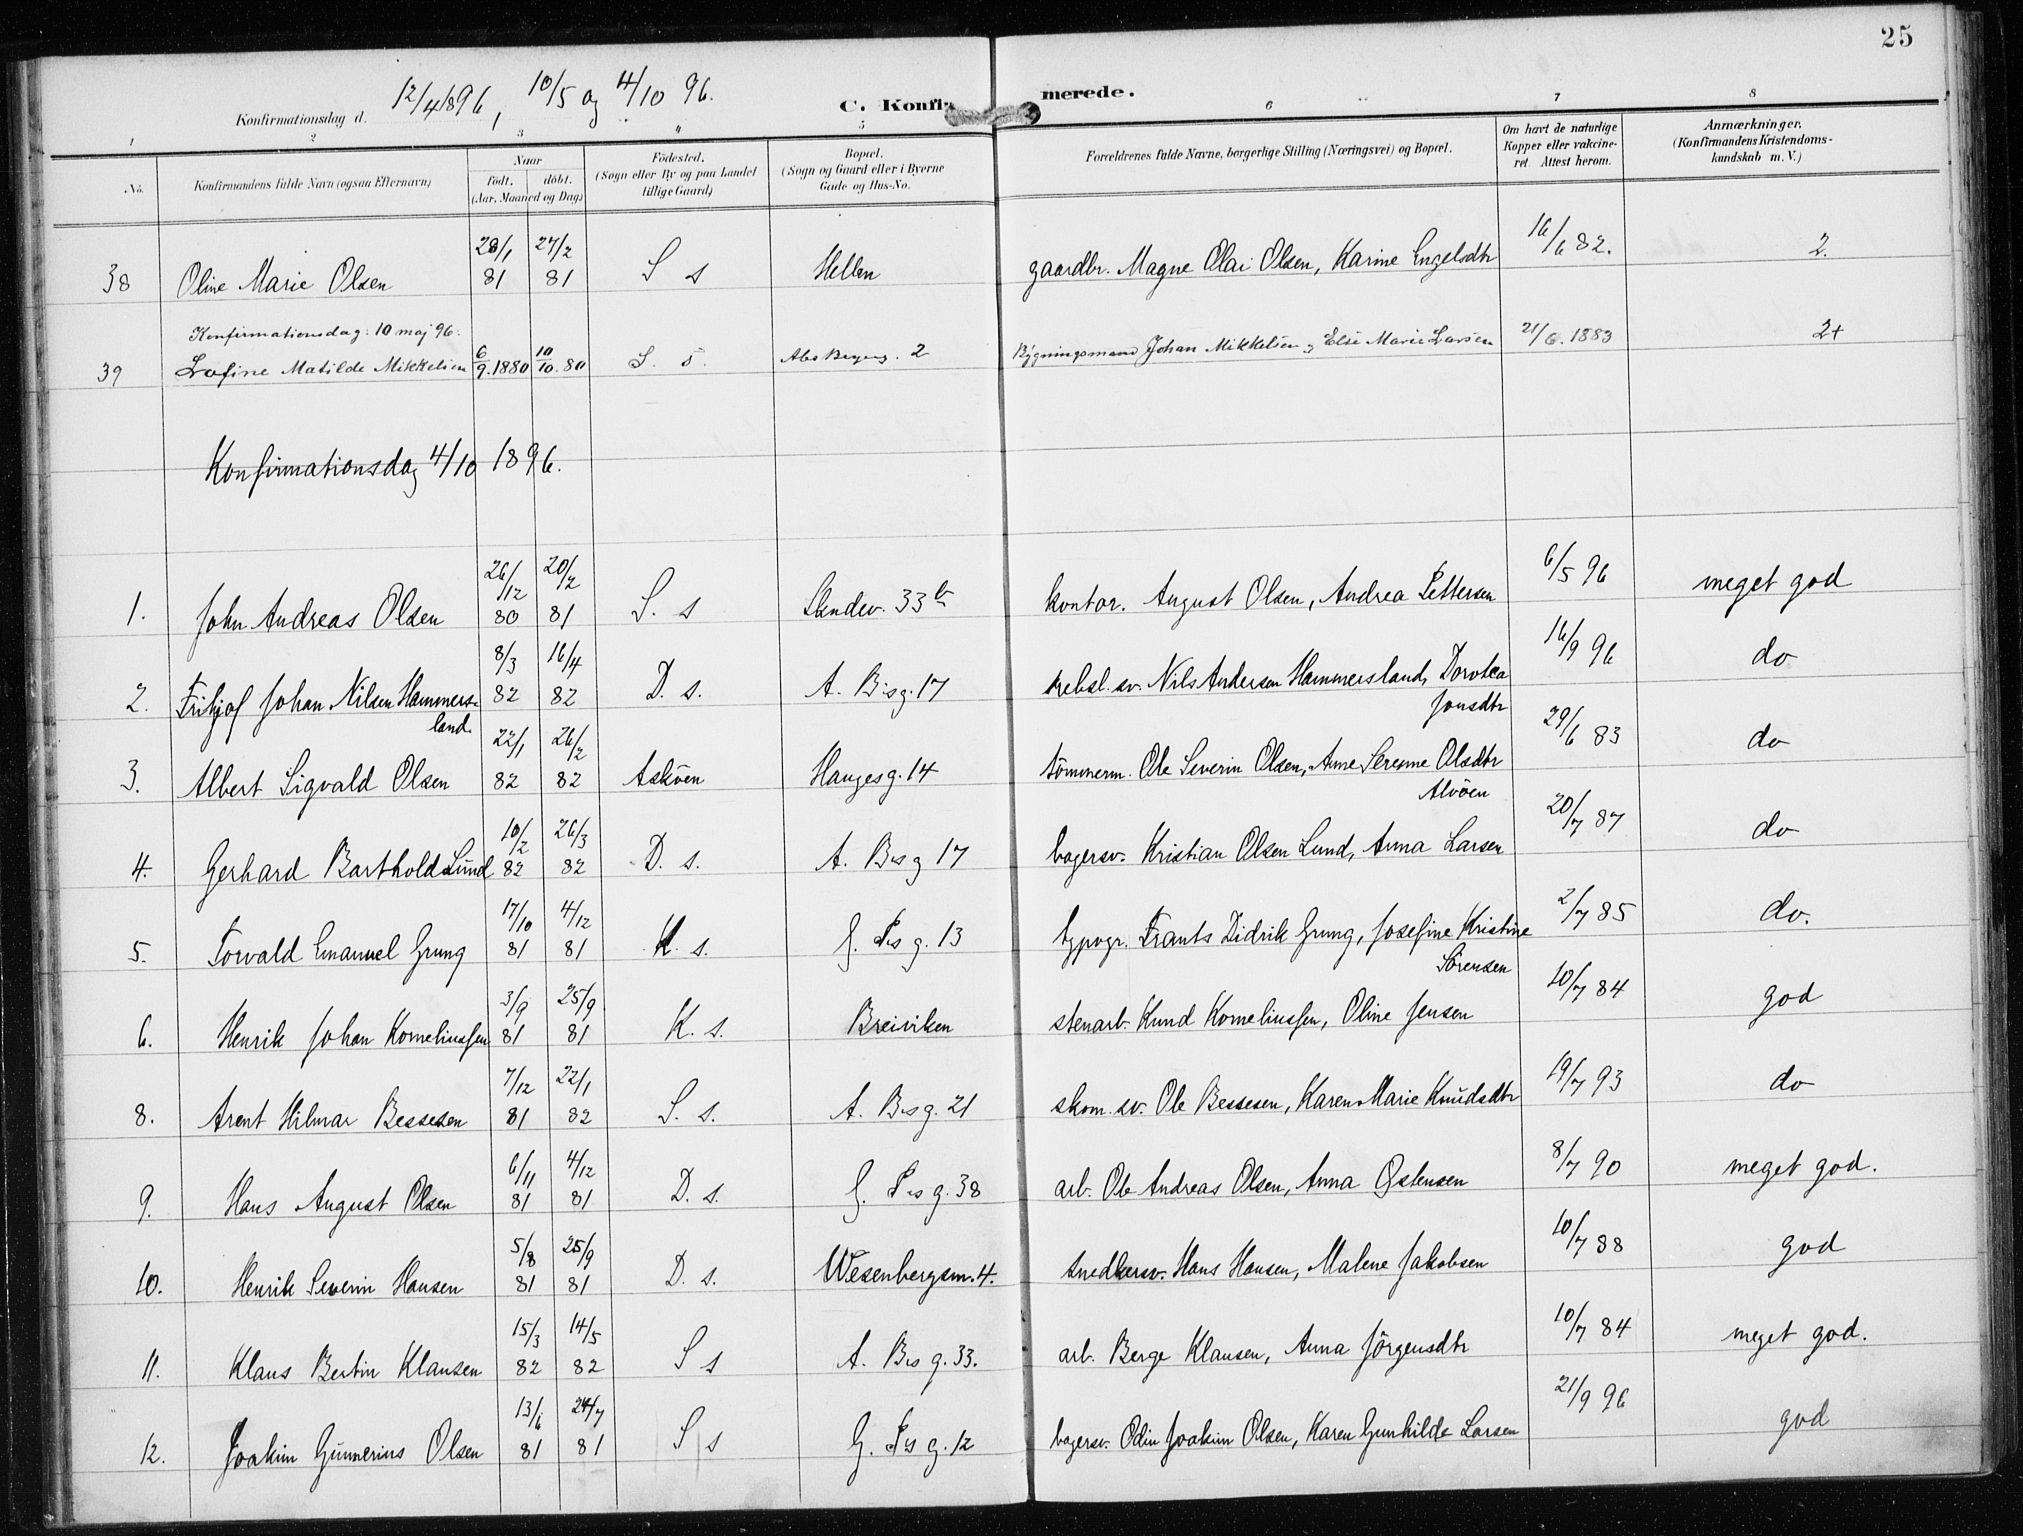 25
Konfirmationsdag d. 12/4 1896, 10/5 og 4/10 96.
C. Konfir merede.
1 2 3 4 5 6 7 8
No.
Konfirmandens fulde Navn (ogsaa Efternavn)
Naar
født. døbt.
(Aar, Maaned og Dag)
Fødested.
(Sogn eller By og paa Landet
tillige Gaard)
Bopæl.
(Sogn og Gaard eller i Byerne
Gade og Hus-No.
Forældrenes fulde Navne, borgerlige Stilling (Næringsvei) og Bopæl.
Om havt de naturlige
Kopper eller vakcine-
ret. Attest herom.
Anmærkninger.
(Konfirmandens Kristendoms-
kundskab m. V.)
38 Oline Marie Olsen 28/1 81 27/2 81 S s Hellen gaardbr. Magne Olai Olsen, Karine Engelsdtr 16/6 82. 2.
Konfirmationsdag: 10 maj 96.
39 Matilde Mikkelsen 6/9. 1880 10/10. 80 S. s. 2 Bygningsmand Johan Mikkelsen, Else Marie Larsen 21/6. 1883 2+
Konfirmationsdag 4/10 1896.
1. John Andreas Olsen 26/12 80 20/2 81 S. s 33 b kontor. August Olsen, Andrea Pettersen 6/5 96 meget god
2. Fritjof Johan Nilsen Hammers- 8/3 82 16/4 82 D. s. A. Bs g. 17 rebsl. sv. Nils Andersen Hammersland, Dorotea 16/9 96 do
land. Jonsdtr
3. Albert Sigvald Olsen 22/1 82 26/2 82 Askøen Hauges g. 14 tømmerm. Ole Severin Olsen, Anne Serenne Olsdtr 29/6 83 do
Alvøen
4. Gerhard Barthold Lund 10/2 82 26/3 82 D. s. A. Bs g 17 bagersv. Kristian Olsen Lund, Anna Larsen 20/7 87 do
5. Torvald Emanuel Grung 17/10 81 4/12 81 K. s. g. 13 typogr. Frants Didrik Grung, Josefine Kristine 2/7 85 do.
Sørensen
6. Henrik Johan Korneliussen 3/9 81 25/9 81 K. s. Breiviken stenarb. Knud Korneliussen, Oline Jensen 10/7 84 god
8. Arent Hilmar Bessesen 7/12 81 22/1 82 S. s. A. Bs g. 21 skom. sv. Ole Bessesen, Karen Marie Knudsdtr 19/7 93 do
9. Hans August Olsen 6/11 81 4/12 81 D. s. g. 38 arb. Ole Andreas Olsen, Anna Østensen 8/7 90 meget god.
10. Henrik Severin Hansen 5/8 81 25/9 81 D. s. Wesenbergsm. 4. snedkersv. Hans Hansen, Malene Jakobsen 10/7 88 god
11. Klaus Bertin Klausen 15/3 82 14/5 82 S s A. Bs g. 33. arb. Berge Klausen, Anna Jørgensdtr 10/7 84 meget god.
12. Joakim Gunnerius Olsen 13/6 81 24/7 81 S s G. Ps g. 12 bagersv. Odin Joakim Olsen, Karen Gunhilde Larsen 21/9 96 god